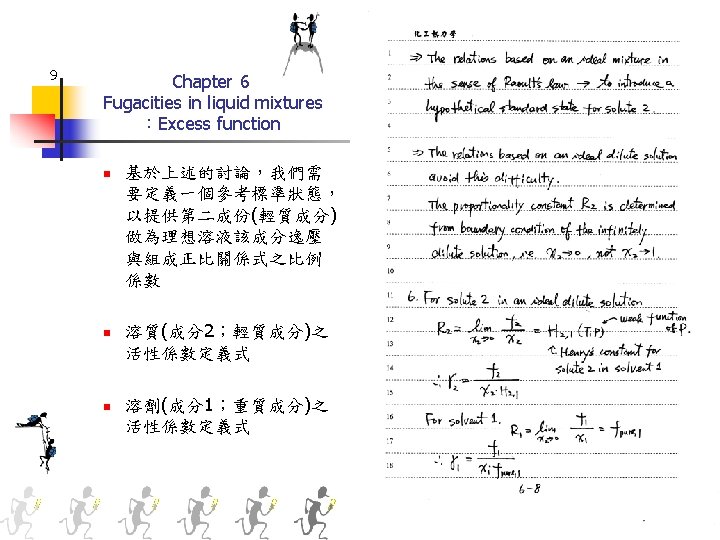 9
Chapter 6
Fugacities in liquid mixtures
：Excess function
基於上述的討論，我們需
要定義一個參考標準狀態，
以提供第二成份(輕質成分)
做為理想溶液該成分逸壓
與組成正比關係式之比例
係數
溶質(成分2；輕質成分)之
活性係數定義式
溶劑(成分1；重質成分)之
活性係數定義式
化工熱力學
1 ⇒ The relations based on an ideal mixture in
2 the sense of Raoult's law → to introduce a
3 hypothetical standard state for solute 2.
4
5 ⇒ The relations based on an ideal dilute solution
6 avoid this difficulty.
7 The proportionality constant R₂ is determined
8 from boundary condition of the infinitely
9 dilute solution, i.e. x₂→0, not x₂→1.
10
11 6. For solute 2 in an ideal dilute solution
12 R₂ = lim x₂→0 f₂/x₂ = H₂,₁ (T,P) weak function of P.
13 ↑ Henry's constant for
14 solute 2 in solvent 1
∴ γ₂ = f₂/(x₂·H₂,₁)
15
16 For solvent 1. R₁ = lim x₂→0 f₁/x₁ = f pure,1
17
18 ∴ γ₁ = f₁/(x₁·f pure,1)
6-8